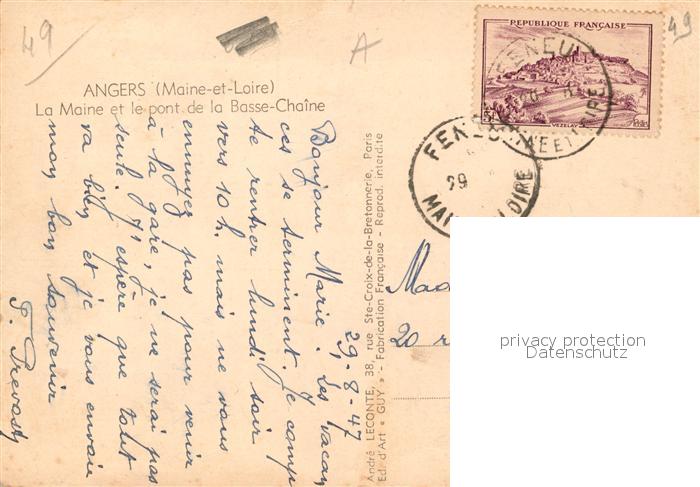 49
A
49
REPUBLIQUE FRANÇAISE
VEZELAY
FENEU
FENEU
29
MAINE ET LOIRE
ANGERS (Maine-et-Loire)
La Maine et le pont de la Basse-Chaîne
29-8-47
Bonjour Marie. Les vacan
ces se terminent. Je comp
te rentrer lundi soir
vers 10 h. mais ne vous
ennuyez pas pour venir
à la gare, je ne serai pas
seule. J'espère que tout
va bien et je vous envoie
mon bon souvenir
André LECONTE, 38, rue Ste-Croix-de-la-Bretonnerie, Paris
Ed. d'Art « GUY » - Fabrication Française - Reprod. interdite
Mad
20 r
privacy protection
Datenschutz